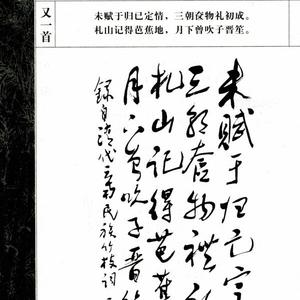 又一首
未赋于归已定情，三朝奁物礼初成。
札山记得芭蕉地，月下曾吹子晋笙。
未赋于归已定
三朝奁物禮初
札山记得芭蕉
月下曾吹子晋笙
録自清代云南民族竹枝词